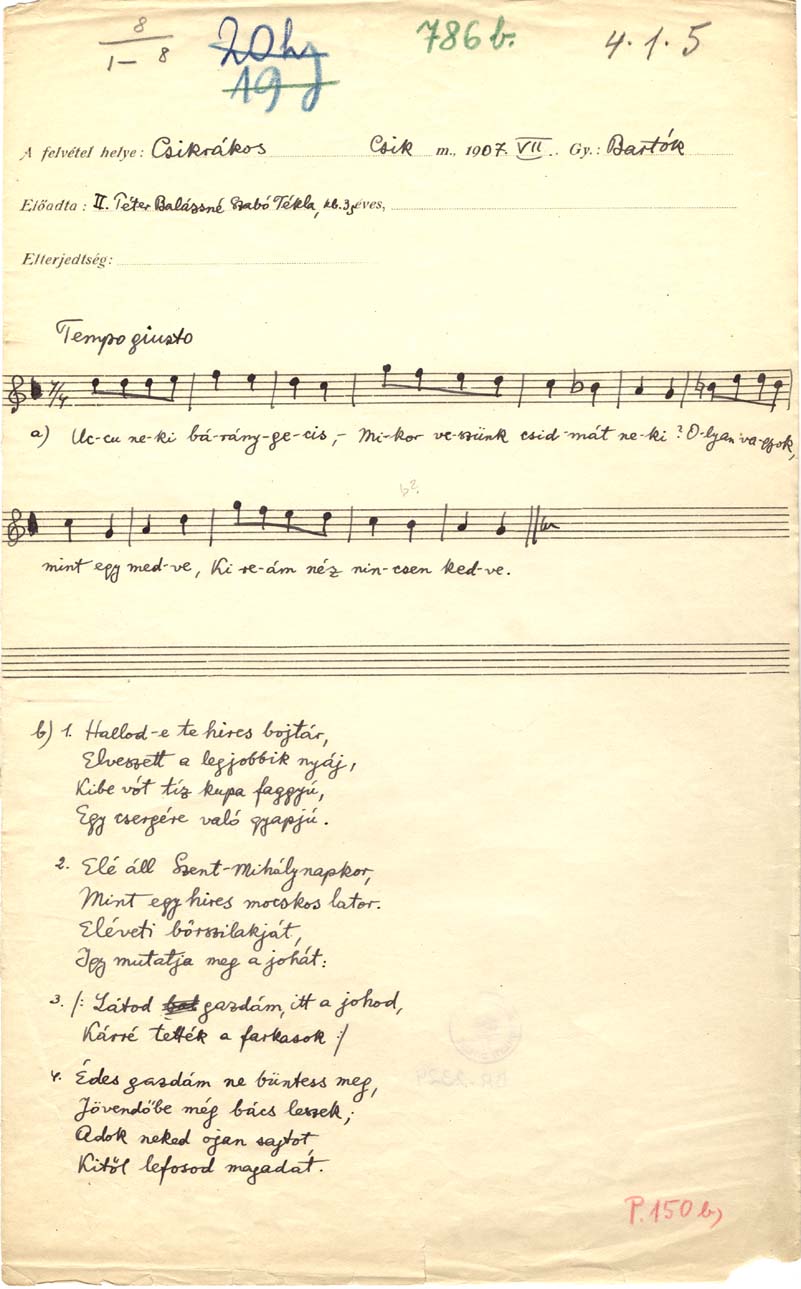 8
1– 8
20 h
19 j
786 b.
4. 1. 5
A felvétel helye: Csikrákos Csik m., 1907. VII. Gy.: Bartók
Előadta: II. Péter Balázsné Szabó Tékla, kb. 35 éves,
Elterjedtség:
Tempo giusto
7/4
a) Uc-cu ne-ki bá-rány-ge-cis,- Mi-kor ve-szünk csid-mát ne-ki? O-lyan va-gyok,
b?
mint egy med-ve, Ki re-ám néz nin-csen ked-ve.
b) 1. Hallod-e te hires bojtár,
Elveszett a legjobbik nyáj,
Kibe vót tíz kupa faggyú,
Egy csergére való gyapjú.
2. Elé áll Szent-Mihálynapkor,
Mint egy hires mocskos lator.
Eléveti bőrszilakját,
Igy mutatja meg a johát:
3. /: Látod gazdám, itt a johod,
Kárré tették a farkasok :/
4. Édes gazdám ne büntess meg,
Jövendőbe még bács leszek;
Adok neked ojan sajtot,
Kitől lefosod magadat.
P. 150 b)